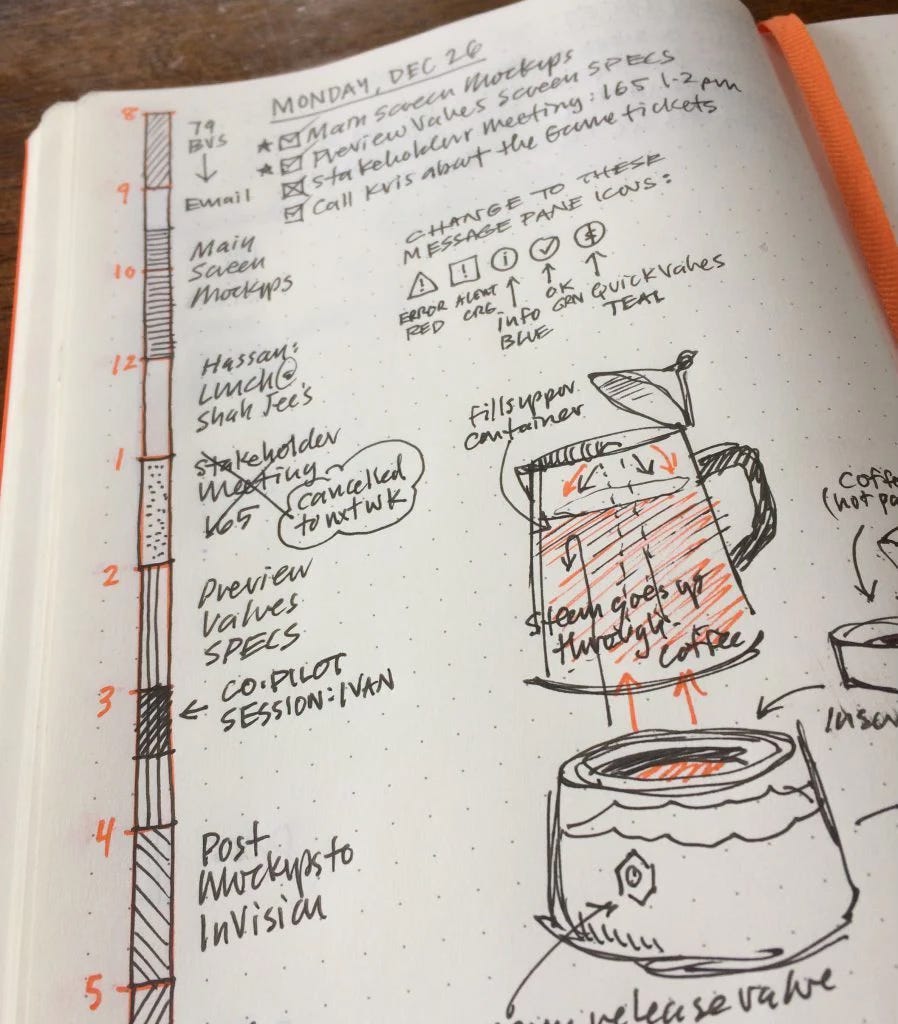 MONDAY, DEC 26
Main Screen Mockups
Preview Values Screen SPECS
Stakeholder meeting: 165 1-2 pm
Call Kris about the Game tickets
8
79
BVS
Email
9
Main
Screen
Mockups
10
12
Hassan:
Lunch @
Shah Jee's
1
Stakeholder
Meeting
165
cancelled
to nxt wk
2
Preview
Values
SPECS
3
CO·PILOT
SESSION: IVAN
4
Post
Mockups to
InVision
5
CHANGE TO THESE
MESSAGE PANE ICONS:
ERROR
RED
ALERT
ORG
info
BLUE
OK
GRN
Quick Values
TEAL
fills upper
container
Steam goes up
through
coffee
(hot
release valve